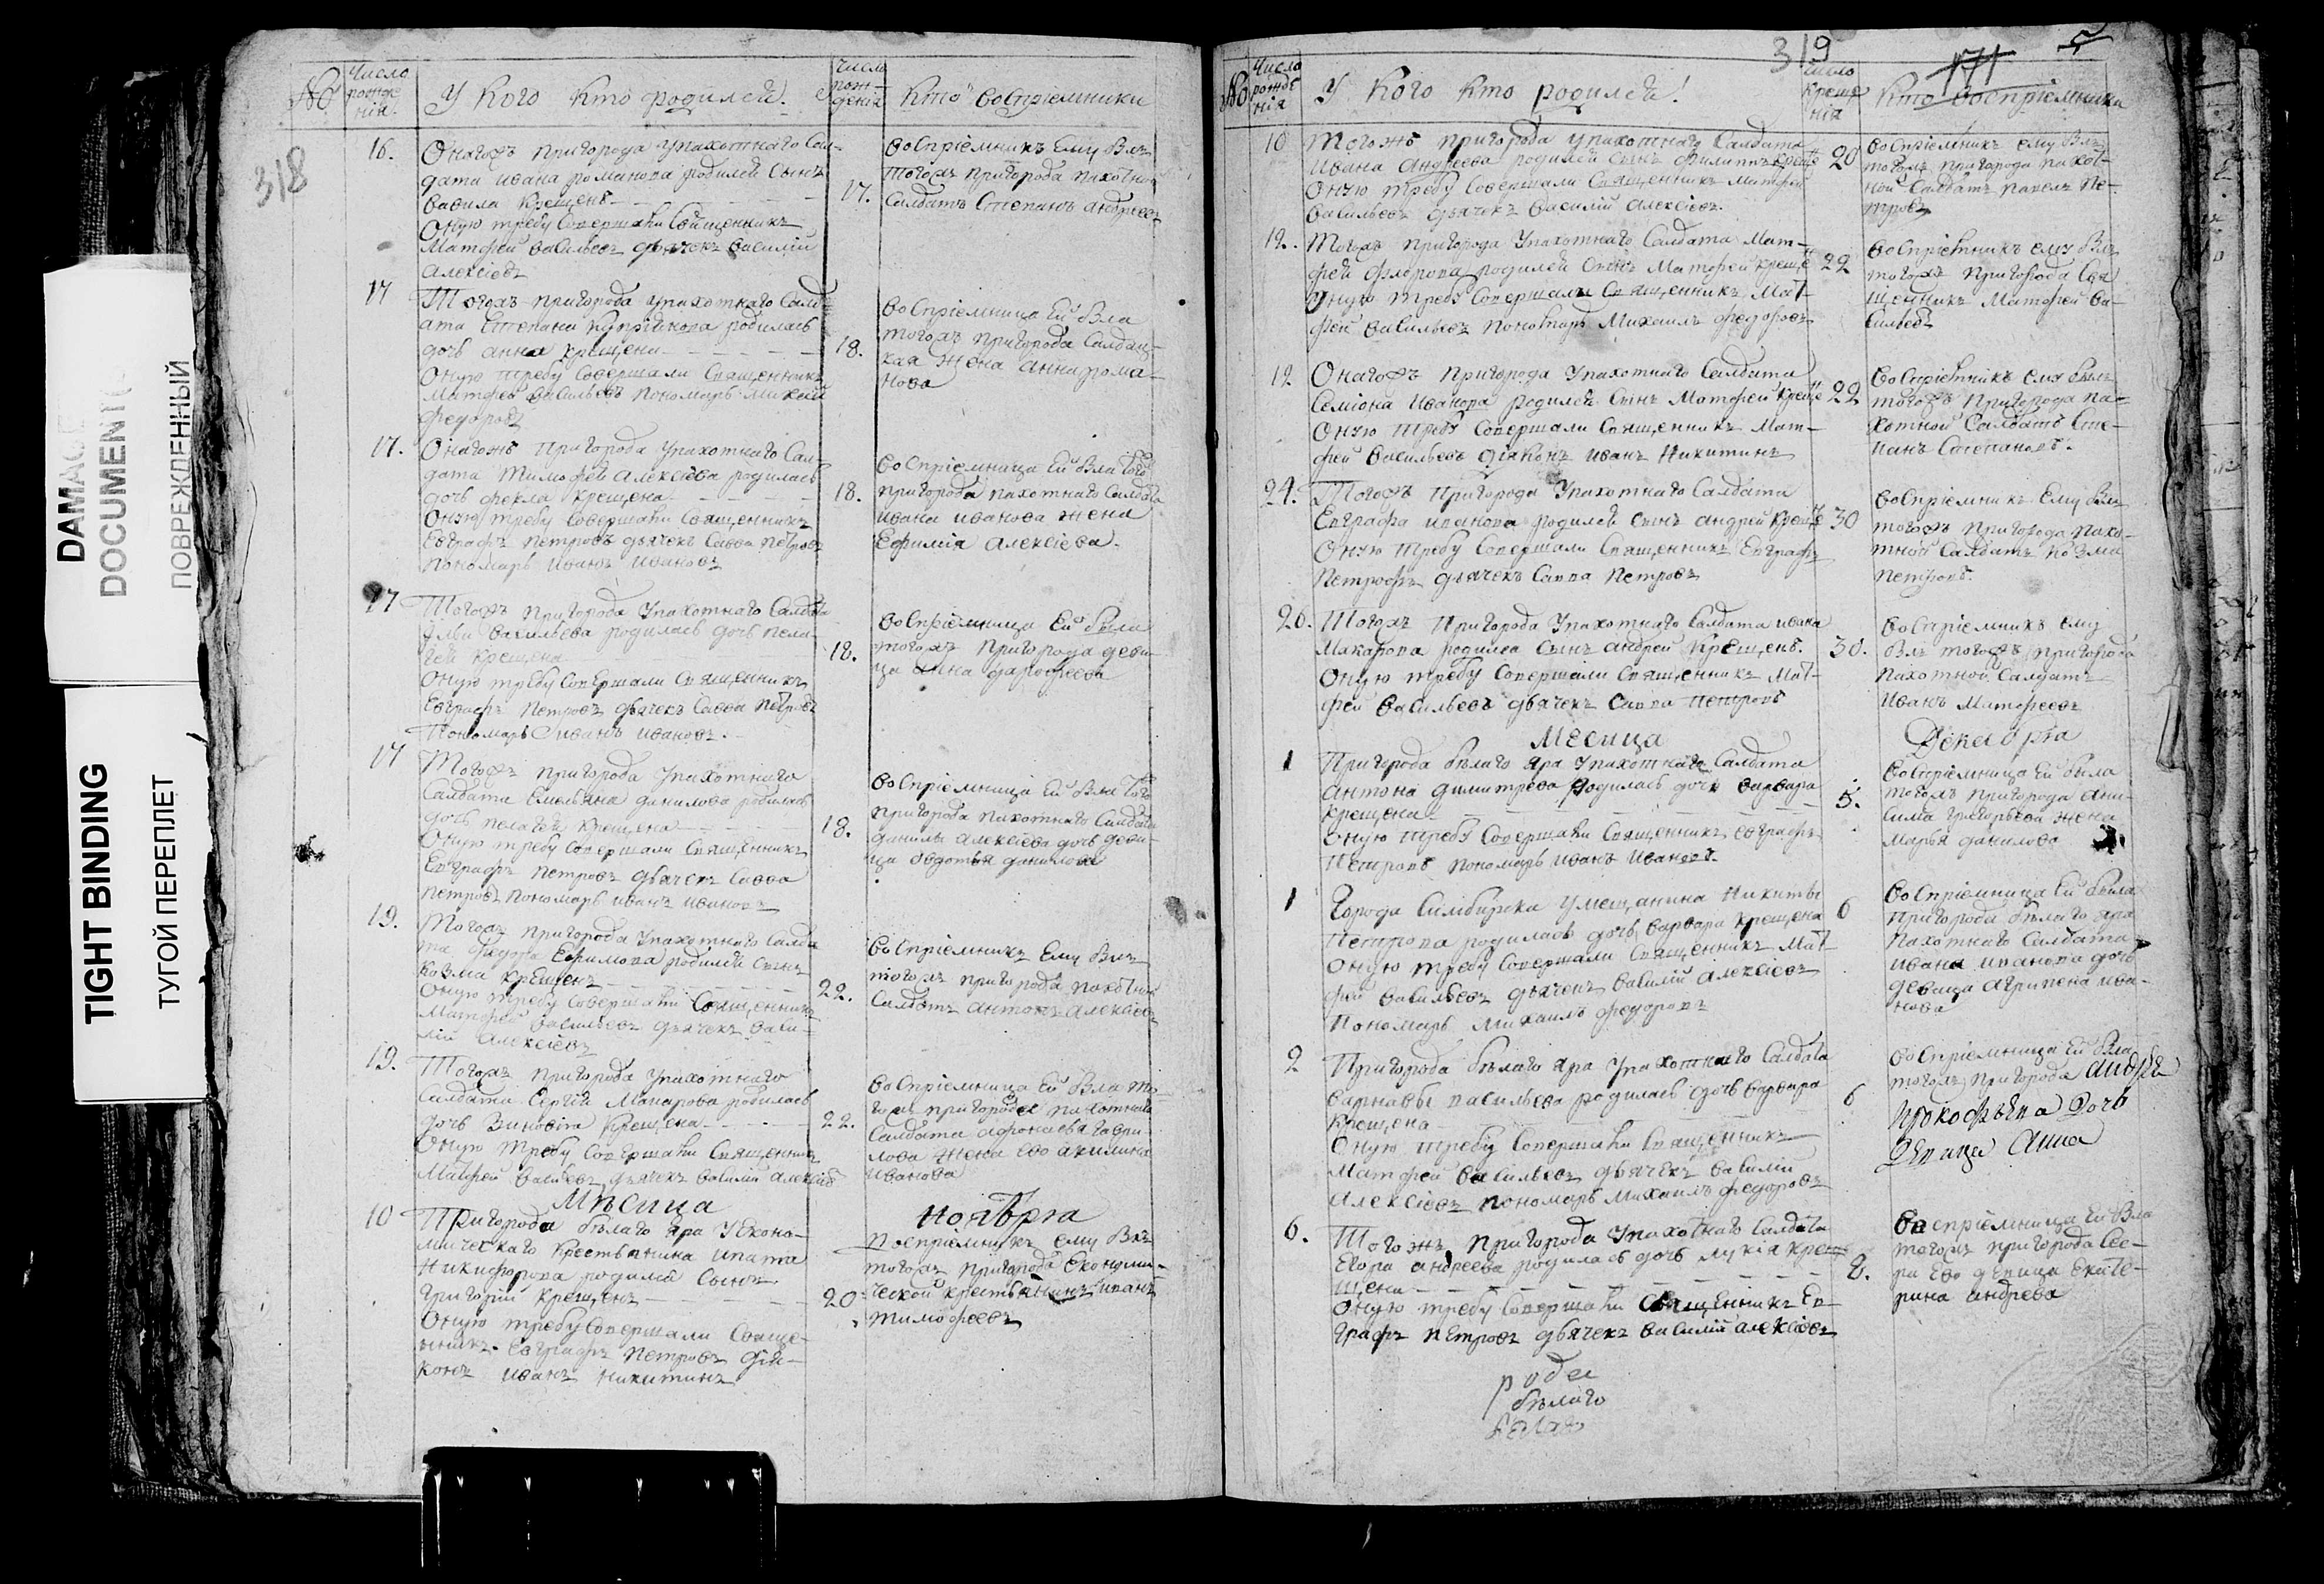 DAMAGE
DOCUMENT
ПОВРЕЖДЕННЫЙ
TIGHT BINDING
ТУГОЙ ПЕРЕПЛЕТ
318
№
Число рожде нія.
У кого кто родился.
Число рож- денія
Кто воспріемники
16. Онагожъ пригорода у пахотнаго Сол-
дата Ивана Романова родился сынъ
Вавила крещенъ
Оную требу совершали Священникъ
Матфей Васильевъ дьячекъ Василій
Алексіевъ
17.
воспріемникъ ему былъ
тогожъ пригорода пахотной
Салдатъ Степанъ Андреевъ
17 Тогожъ пригорода у пахотнаго Салд-
ата Степана родилась
дочь Анна крещена
Оную требу совершали Священникъ
Матфей Васильевъ пономарь Михаил
Федоровъ
18.
воспріемница ей была
тогожъ пригорода Салдац-
кая жена Анна Рома-
нова
17. Онагожъ пригорода у пахотнаго Сал-
дата Тимофея Алексіева родилась
дочь Фекла крещена
Оную требу совершали Священникъ
Евграфъ Петровъ дьячекъ Савва Петровъ
пономарь Иванъ Ивановъ
18.
воспріемница ей была того
пригорода пахотнаго Салдата
Ивана Иванова жена
Ефимія Алексіева.
17 Тогожъ пригорода у пахотнаго Салдата
Ильи Васильева родилась дочь Пела-
гея крещена
Оную требу совершали Священникъ
Евграфъ Петровъ дьячекъ Савва Петровъ
Пономарь Иванъ Ивановъ.
18.
воспріемница ей была
тогожъ пригорода деви-
ца Анна
17 Тогожъ пригорода у пахотнаго
Салдата Емельяна Данилова родилась
дочь Пелагея крещена
Оную требу совершали Священникъ
Евграфъ Петровъ дьячекъ Савва
Петровъ пономарь Иванъ Ивановъ
18.
воспріемница ей была того
пригорода пахотнаго Салдата
Данилы Алексіева дочь деви-
ца Овдотья Данилова
19. Тогожъ пригорода у пахотнаго Салда
та Федора Ефимова родился сынъ
Козма крещенъ
Оную требу совершали Священникъ
Матфей Васильевъ дьячекъ Васи-
лій Алексіевъ
22.
воспріемникъ ему былъ
тогожъ пригорода пахотной
Салдатъ Антонъ Алексіевъ
19. Тогожъ пригорода у пахотнаго
Салдата Сергія Макарова родилась
дочь Зиновія крещена
Оную требу совершали Священникъ
Матфей Васильевъ дьячекъ Василій Алексіевъ
22.
воспріемница ей была то-
гожъ пригорода пахотнаго
Салдата Афонасья Гаври-
лова жена ево Акилина
Иванова
Мѣсяца Ноября
10 Пригорода Бѣлаго Яра у Еконо-
мическаго крестьянина Ипата
Никифорова родился сынъ
Григорій крещенъ
Оную требу совершали Свяще-
нникъ Евграфъ Петровъ дія-
конъ Иванъ Никитинъ
20
воспріемникъ ему былъ
тогожъ пригорода Економи-
ческой крестьянинъ Иванъ
Тимофеевъ
319
171
№
Число рожде нія
У кого кто родился!
число креще нія
Кто воспріемники
10 Тогожъ пригорода у пахотнаго Салдата
Ивана Андреева родился сынъ Филиппъ креще
Оную требу совершали Священникъ Матфей
Васильевъ дьячекъ Василій Алексіевъ.
20
воспріемникъ ему былъ
тогожъ пригорода пахот-
ной Салдатъ Павелъ Пе-
тровъ
12. Тогожъ пригорода у пахотнаго Салдата Мат-
фея Федорова родился сынъ Матфей креще
Оную требу совершали Священникъ Мат-
фей Васильевъ пономарь Михаилъ Федоровъ
22
воспріемникъ ему былъ
тогожъ пригорода Свя
щенникъ Матфей Ва-
сильевъ
12 Онагожъ пригорода у пахотнаго Салдата
Семіона Иванова родился сынъ Матфей креще
Оную требу совершали Священникъ Мат-
фей Васильевъ діаконъ Иванъ Никитинъ
22
воспріемникъ ему былъ
тогожъ пригорода па-
хотной Салдатъ Сте-
панъ Степановъ.
24. Тогожъ пригорода у пахотнаго Салдата
Евграфа Иванова родился сынъ Андрей креще
Оную требу совершали Священникъ Евграфъ
Петровъ дьячекъ Савва Петровъ
30
воспріемникъ ему былъ
тогожъ пригорода пахо-
тной Салдатъ Козма
Петровъ.
26. Тогожъ пригорода у пахотнаго Салдата Ивана
Макарова родился сынъ Андрей крещенъ.
Оную требу совершали Священникъ Мат-
фей Васильевъ дьячекъ Савва Петровъ
30.
воспріемникъ ему
былъ тогожъ пригорода
пахотной Салдатъ
Иванъ Матфеевъ
Месяца Декабря
1 Пригорода Бѣлаго Яра у пахотнаго Салдата
Антона Димитрева родилась дочь Варвара
крещена
Оную требу совершали Священникъ Евграфъ
Петровъ пономарь Иванъ Ивановъ.
5.
воспріемница ей была
тогожъ пригорода Ани-
сима Григорьева жена
Марья Данилова
1 Города Симбирска у мещанина Никиты
Петрова родилась дочь Варвара крещена
Оную требу совершали Священникъ Мат-
фей Васильевъ дьячекъ Василій Алексіевъ
Пономарь Михаилъ Федоровъ
6
воспріемница ей была
пригорода Бѣлаго Яра
пахотнаго Салдата
Ивана Иванова дочь
девица Агрипена Ива-
нова
2 Пригорода Бѣлаго Яра у пахотнаго Салдата
Варнавы Васильева родилась дочь Варвара
крещена
Оную требу совершали Священникъ
Матфей Васильевъ дьячекъ Василій
Алексіевъ пономарь Михаилъ Федоровъ
6
воспріемница ей была
тогожъ пригорода Андрея
Прокофьева дочь
девица Анна
6. Тогожъ пригорода у пахотнаго Салдата
Егора Андреева родилась дочь Лукія кре-
щена
Оную требу совершали Священникъ Ев-
графъ Петровъ дьячекъ Василій Алексіевъ
8.
воспріемница ей была
тогожъ пригорода сес-
ра ево девица Екате-
рина Андрева
рода
бѣлаго